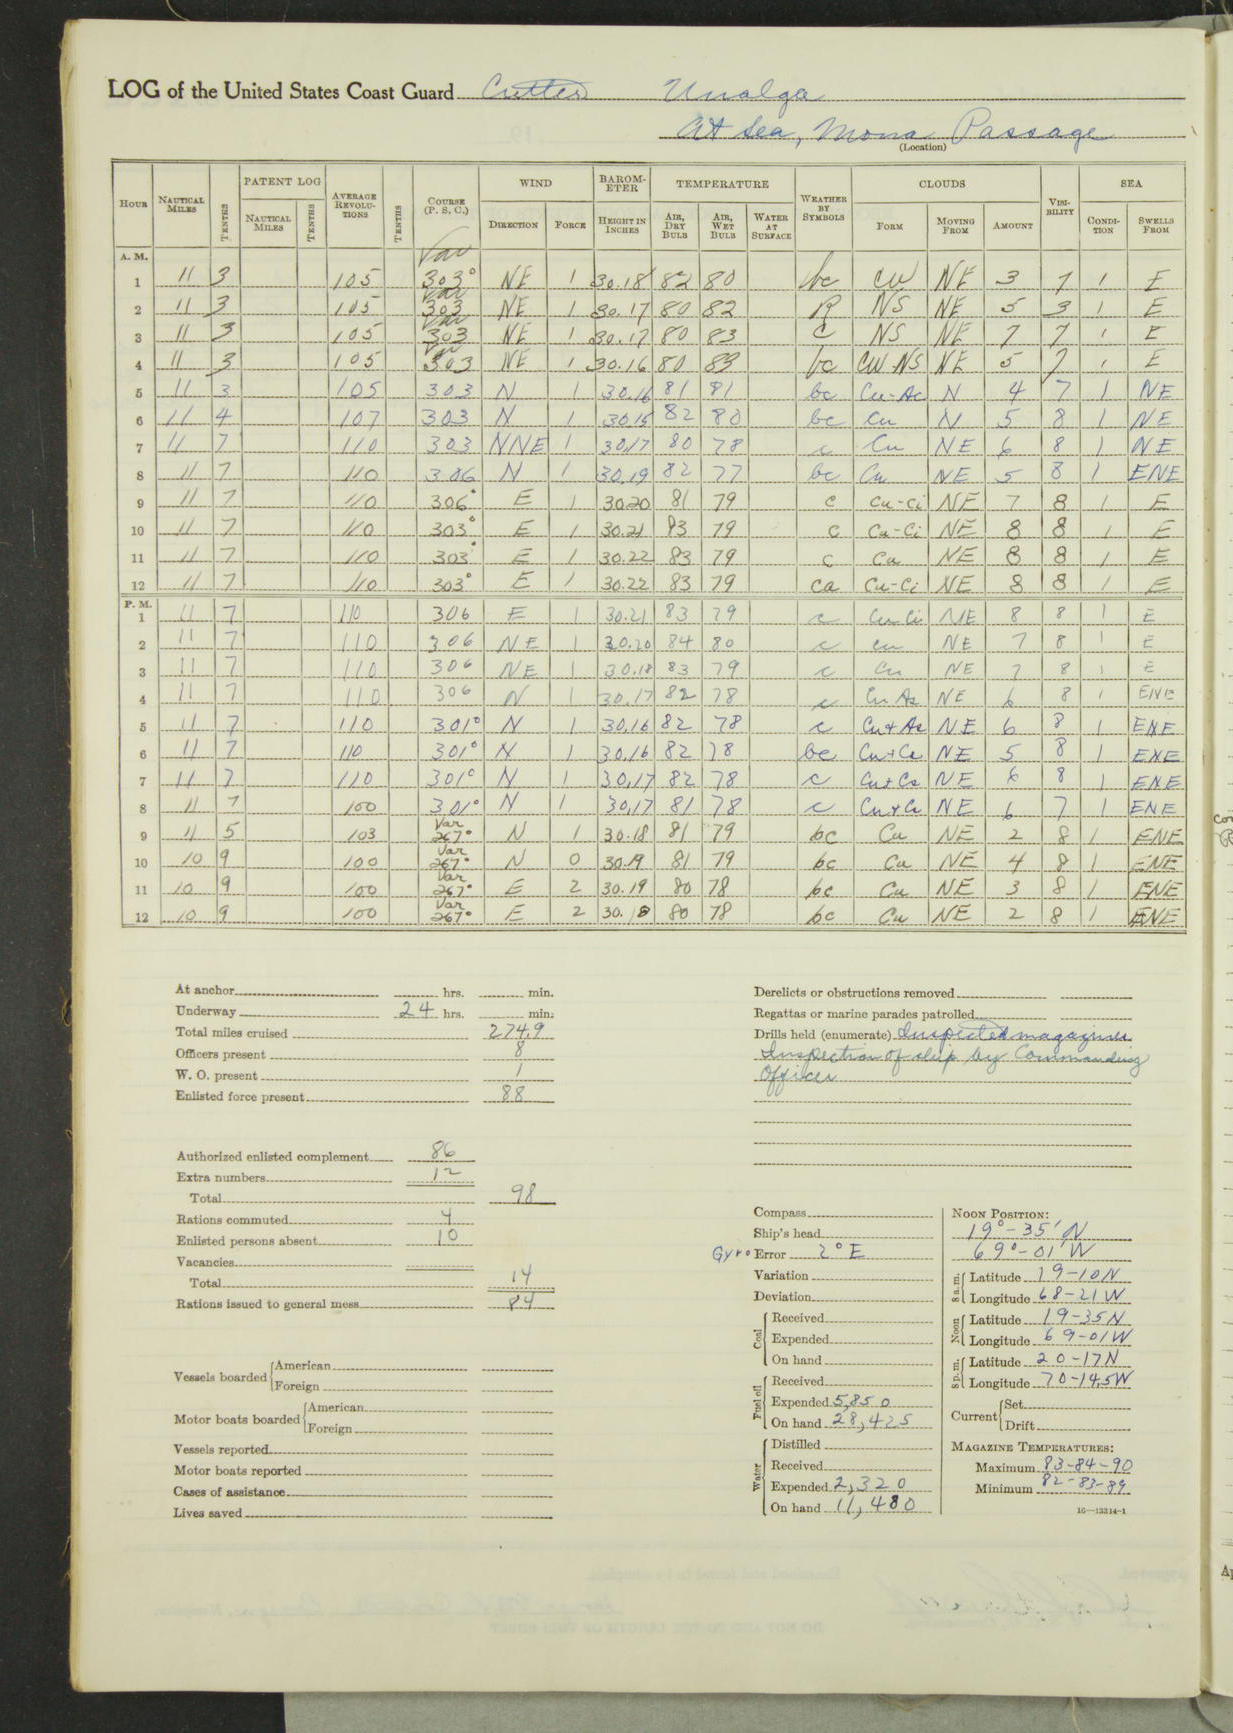 LOG of the United States Coast Guard Cutter Unalga
At Sea, Mona Passage
(Location)
HOUR NAUTICAL MILES TENTHS PATENT LOG NAUTICAL MILES TENTHS AVERAGE REVOLUTIONS TENTHS COURSE (P. S. C.) WIND DIRECTION FORCE BAROMETER HEIGHT IN INCHES TEMPERATURE AIR, DRY BULB AIR, WET BULB WATER AT SURFACE WEATHER BY SYMBOLS CLOUDS FORM MOVING FROM AMOUNT VISIBILITY SEA CONDITION SWELLS FROM
A. M.
1 11 3 105 Var 303° NE 1 30.18 82 80 bc CU NE 3 7 1 E
2 11 3 105 Var 303 NE 1 30.17 80 82 R NS NE 5 3 1 E
3 11 3 105 Var 303 NE 1 30.17 80 83 C NS NE 7 7 1 E
4 11 3 105 Var 303 NE 1 30.16 80 83 bc CU NS NE 5 7 1 E
5 11 3 105 303 N 1 30.16 81 81 bc Cu-Ac N 4 7 1 NE
6 11 4 107 303 N 1 30.15 82 80 bc Cu N 5 8 1 NE
7 11 7 110 303 NNE 1 30.17 80 78 c Cu NE 6 8 1 NE
8 11 7 110 306 N 1 30.19 82 77 bc Cu NE 5 8 1 ENE
9 11 7 110 306° E 1 30.20 81 79 c Cu-Ci NE 7 8 1 E
10 11 7 110 303° E 1 30.21 83 79 c Cu-Ci NE 8 8 1 E
11 11 7 110 303° E 1 30.22 83 79 c Cu NE 8 8 1 E
12 11 7 110 303° E 1 30.22 83 79 ca Cu-Ci NE 8 8 1 E
P. M.
1 11 7 110 306 E 1 30.21 83 79 c Cu Ci NE 8 8 1 E
2 11 7 110 306 NE 1 30.20 84 80 c cu NE 7 8 1 E
3 11 7 110 306 NE 1 30.18 83 79 c Cu NE 7 8 1 E
4 11 7 110 306 N 1 30.17 82 78 c Cu As NE 6 8 1 ENE
5 11 7 110 301° N 1 30.16 82 78 c Cu+As NE 6 8 1 ENE
6 11 7 110 301° N 1 30.16 82 78 bc NE 5 8 1 ENE
7 11 7 110 301° N 1 30.17 82 78 c NE 6 8 1 ENE
8 11 7 100 301° N 1 30.17 81 78 c NE 6 7 1 ENE
9 11 5 103 Var 267° N 1 30.18 81 79 bc Cu NE 2 8 1 ENE
10 10 9 100 Var 267° N 0 30.19 81 79 bc Cu NE 4 8 1 ENE
11 10 9 100 Var 267° E 2 30.19 80 78 bc Cu NE 3 8 1 ENE
12 10 9 100 Var 267° E 2 30.18 80 78 bc Cu NE 2 8 1 ENE
At anchor hrs. min.
Underway 24 hrs. min.
Total miles cruised 274.9
Officers present 8
W. O. present 1
Enlisted force present 88
Authorized enlisted complement 86
Extra numbers 12
Total 98
Rations commuted 4
Enlisted persons absent 10
Vacancies
Total 14
Rations issued to general mess 84
Vessels boarded American
Foreign
Motor boats boarded American
Foreign
Vessels reported
Motor boats reported
Cases of assistance
Lives saved
Derelicts or obstructions removed
Regattas or marine parades patrolled
Drills held (enumerate) Inspected magazines
Inspection of ship by Commanding
Officer
Compass
Ship's head
Gyro Error 2° E
Variation
Deviation
Coal Received
Expended
On hand
Fuel oil Received
Expended 5,850
On hand 28,425
Water Distilled
Received
Expended 2,320
On hand 11,480
NOON POSITION:
19°-35' N
69°-01' W
8 a.m. Latitude 19-10N
Longitude 68-21W
Noon Latitude 19-35N
Longitude 69-01W
8 p.m. Latitude 20-17N
Longitude 70-14.5W
Current Set
Drift
MAGAZINE TEMPERATURES:
Maximum 83-84-90
Minimum 82-83-89
16—13314-1